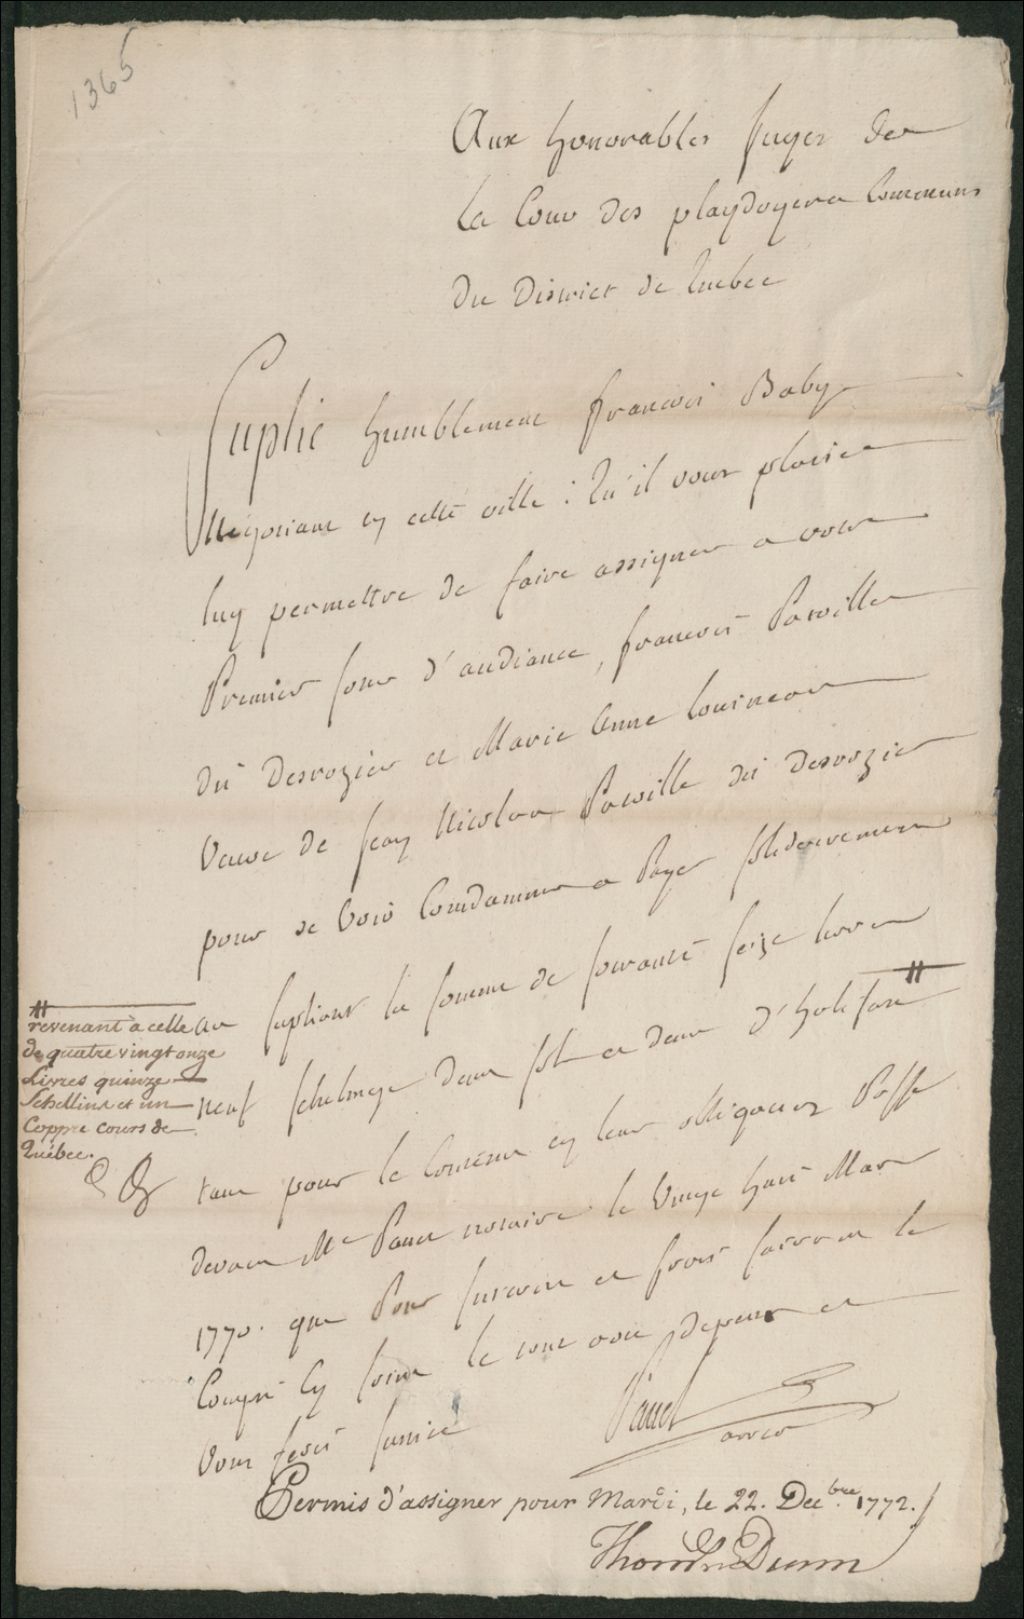 1365
Aux honorables Juges de
la Cour des playdoyers Communs
du District de Quebec
Suplie humblement françois Baby
Négociant en cette ville : Qu'il vous plaise
luy permettre de faire assigner a votre
Premier Jour d'audiance, françois Parville
dit Desrozier et Marie Anne
Veuve de Jean Nicolas Parville dit desrozier
pour se Voir Condamner a Payer solidairement
au supliant la somme de soixante seize livres
neuf schelings deux sols et demi d'halifax #
# revenant à celle
de quatre vingt onze
Livres quinze
Schellins et un
Coppre cours de
Québec.
tant pour le Contenu en leur obligation Passé
devant Me Panet notaire le Vingt huit Mars
1770. que Pour et frais suivant le
Compte Cy Joint le tout avec depens et
Vous ferés Justice
Panet
Permis d'assigner pour Mardi, le 22. Decbre 1772.
Thomas Dunn